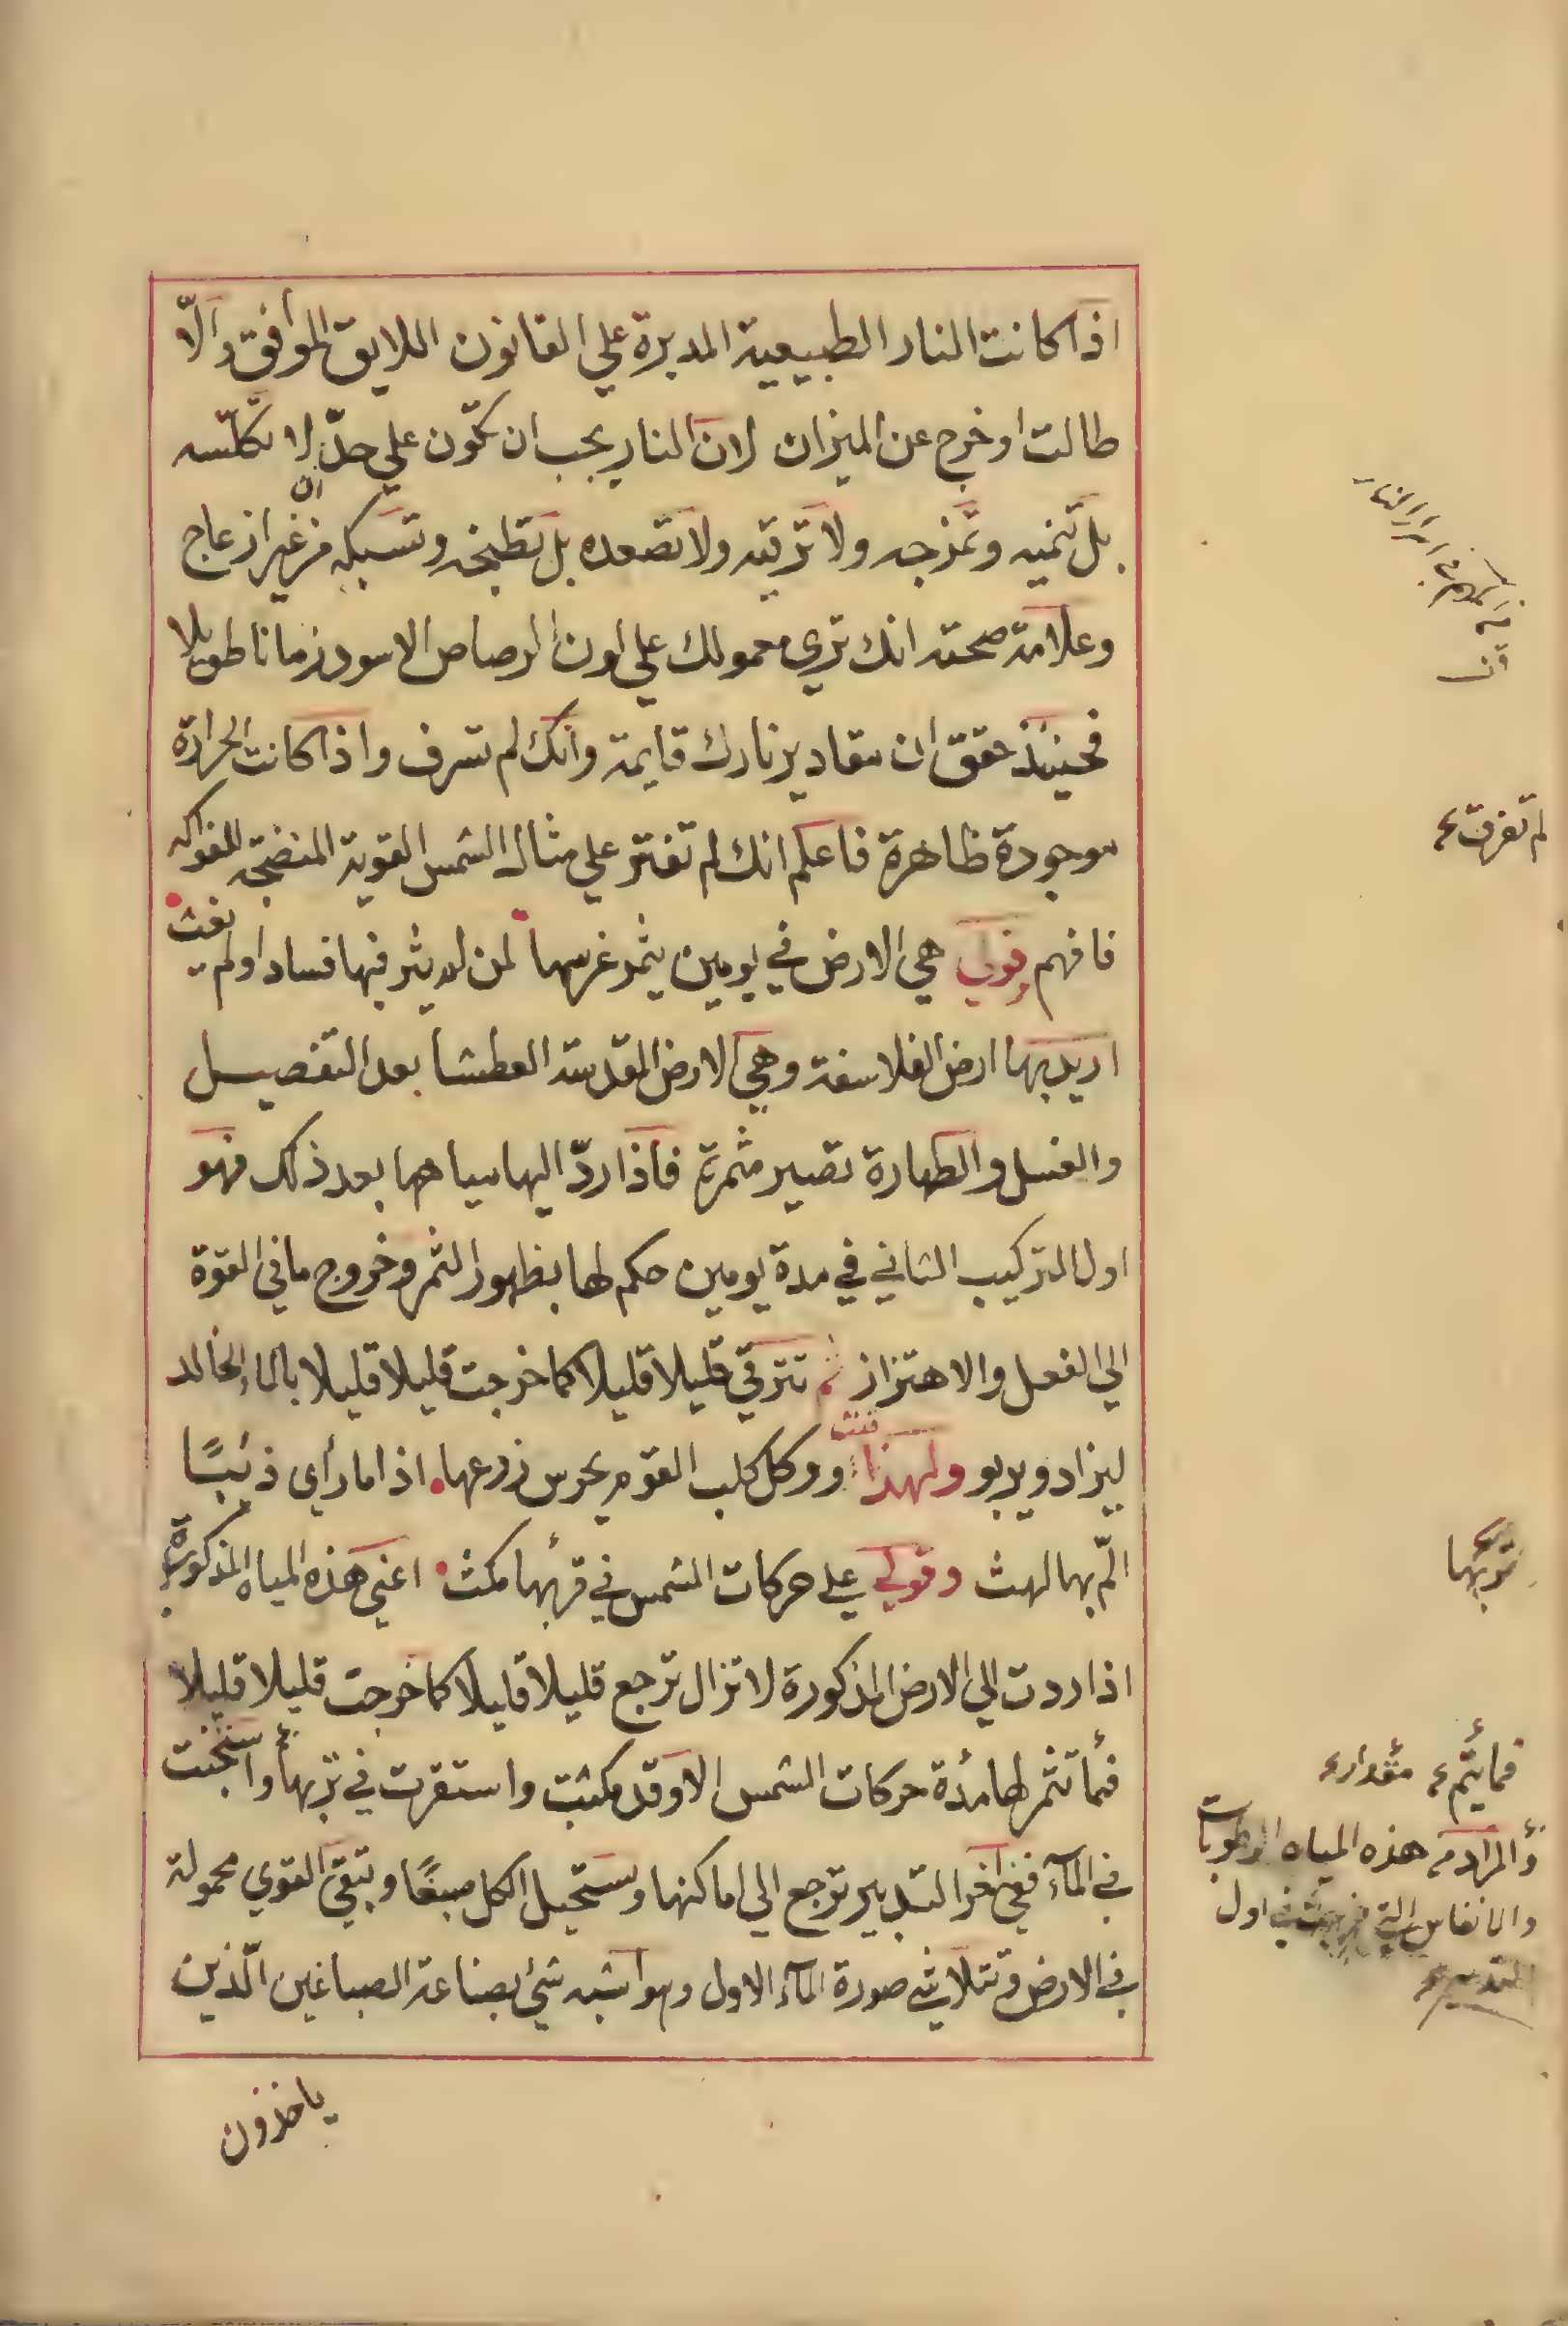 اذا كانت النار الطبيعية المدبرة علي القانون اللايق الموافق والّا
طالت او خرج عن الميزان لان النار يجب ان تكّون علي حدّ لا تكلّسه
بل تنميه وتمزجه ولا ترقيه ولا تصعده بل تطبخه وتسبكه من غير ازعاج
وعلامة صحته انك تري معمولك علي لون الرصاص الاسود زمانا طويلا
فحينئذ حقق ان مقادير نارك قايمة وانك لم تسرف واذا كانت الحرارة
موجودة ظاهرة فاعلم انك لم تفتر علي مثال الشمس القوية المنضجة للفواكه
فافهم قولي هي الارض في يومين يثمر غرسها لمن لم يثر فيها فسادا ولم يعث
اريد بها ارض الفلاسفة وهي الارض المقدسة العطشا بعد التفصيل
والغسل والطهارة تصير مثمرة فاذا ردّ اليها مياهها بعد ذلك فهو
اول التركيب الثاني في مدة يومين حكم لها بظهور الثمر وخروج ما في القوة
الي الفعل والاهتزاز ثم تترقي قليلا قليلا كما خرجت قليلا قليلا بالماء الخالد
ليزاد ويربو ولهذا قلت ووكل كلب القوم يحرس زرعها اذا ما رأي ذئبًا
الّم بها لهث وقولي علي حركات الشمس في قربها مكث اعني هذه المياه المذكورة
اذا ردت الي الارض المذكورة لا تزال ترجع قليلا قليلا كما خرجت قليلا قليلا
فما تثمر لها مدة حركات الشمس الا وقد مكثت واستقرت في تربها واستجنت
في المآء ففي آخر التدبير ترجع الي اماكنها وستحيل الكل صبغًا وتبقي القوي محمولة
في الارض وتتلاشي صورة المآء الاول وهو اشبه شيء بصناعة الصباغين الّذين
ياخذون
في اسرار النار
لم تعرف
تربها
فما يتم مقدار
والمراد من هذه المياه الرطوبات
والانفاس التي في اول
التدبير